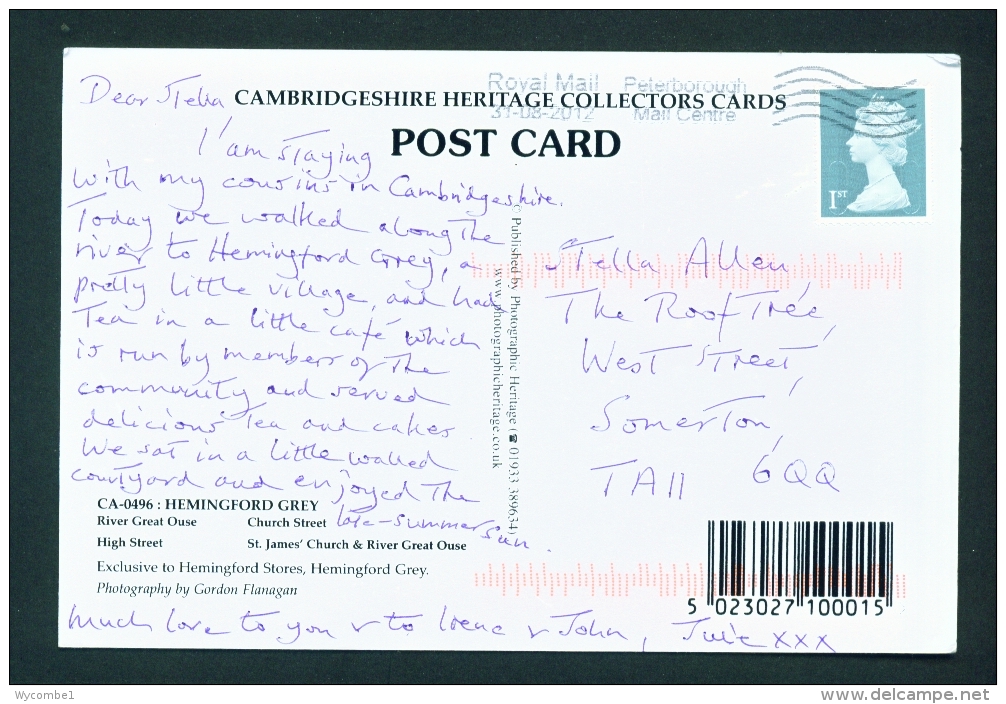 Royal Mail Peterborough
31-08-2012 Mail Centre
CAMBRIDGESHIRE HERITAGE COLLECTORS CARDS
POST CARD
1ST
Dear Stella
I'am staying
with my cousins in Cambridgeshire.
Today we walked along the
river to Hemingford Grey, a
pretty little village, and had
Tea in a little café which
is run by members of the
community and served
delicious Tea and cakes.
We sat in a little walled
courtyard and enjoyed the
late-summer sun.
Much love to you & to Irene & John, Julie xxx
© Published by Photographic Heritage (☎ 01933 389634)
www.photographicheritage.co.uk
Stella Allen,
The Roof Tree,
West Street,
Somerton,
TA11 6QQ
CA-0496 : HEMINGFORD GREY
River Great Ouse Church Street
High Street St. James' Church & River Great Ouse
Exclusive to Hemingford Stores, Hemingford Grey.
Photography by Gordon Flanagan
5 023027 100015
Wycombe1
www.delcampe.net